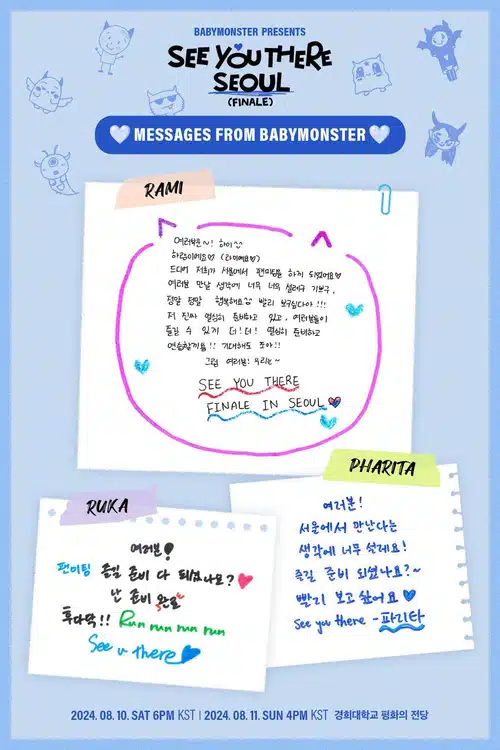 BABYMONSTER PRESENTS
SEE YOU THERE
SEOUL
(FINALE)
MESSAGES FROM BABYMONSTER
RAMI
여러분~! 하이
하람이에요♡ (라미에요♡)
드디어 저희가 서울에서 팬미팅을 하게 되었어요♡
여러분 만날 생각에 너무 너무 설레구 기쁘구,
정말 정말 행복해요 빨리 보구싶다아!!!
저 진짜 열심히 준비하고 있고, 여러분들이
즐길 수 있게 더! 더! 열심히 준비하고
연습할게요!! 기대해도 좋아!!
그럼 여러분! 우리는~
SEE YOU THERE
FINALE IN SEOUL
RUKA
여러분!
팬미팅 즐길 준비 다 되셨나요?
난 준비 완료
후다닥!! Run run run run
See u there
PHARITA
여러분!
서울에서 만난다는
생각에 너무 설레요!
즐길 준비 되셨나요?~
빨리 보고 싶어요♥
See you there - 파리타
2024. 08. 10. SAT 6PM KST | 2024. 08. 11. SUN 4PM KST 경희대학교 평화의 전당